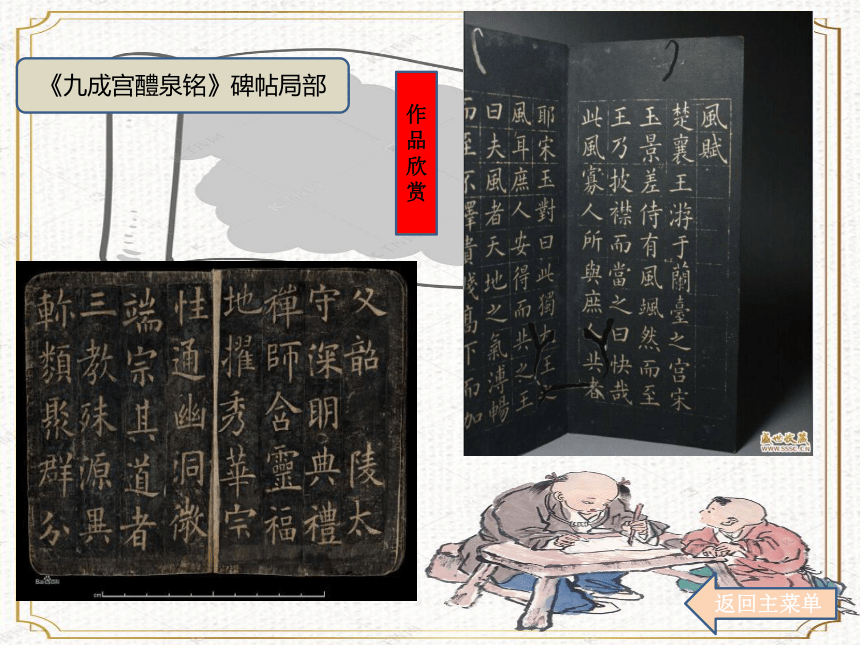 《九成宫醴泉铭》碑帖局部
作品欣赏
風賦
楚襄王游于蘭臺之宫宋
玉景差侍有風颯然而至
王乃披襟而當之曰快哉
此風寡人所與庶人共者
耶宋玉對曰此獨大王之
風耳庶人安得而共之王
曰夫風者天地之氣溥暢
而至不擇貴賤高下而加
盛世收藏
WWW.SSSC.CN
父韶 陵太
守深明典禮
禪師含靈福
地擢秀華宗
性通幽洞微
端宗其道者
三教殊源異
軫類聚群分
Bai百科
cm
返回主菜单